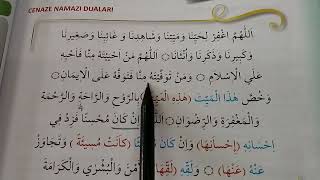 CENAZE NAMAZI DUALARI
اَللّٰهُمَّ اغْفِرْ لِحَيِّنَا وَمَيِّتِنَا وَشَاهِدِنَا وَ غَائِبِنَا وَصَغِيرِنَا
وَكَبِيرِنَا وَذَكَرِنَا وَاُنْثَانَا ۞ اَللّٰهُمَّ مَنْ اَحْيَيْتَهُ مِنَّا فَاَحْيِهِ
عَلَي الْاِسْلَامِ ۞ وَمَنْ تَوَفَّيْتَهُ مِنَّا فَتَوَفَّهُ عَلَي الْاِيمَانِ ۞
وَخُصَّ هٰذَا الْمَيِّتَ (هٰذِهِ الْمَيِّتَةَ) بِالرَّوْحِ وَالرَّاحَةِ وَالرَّحْمَةِ
وَالْمَغْفِرَةِ وَالرِّضْوَانِ ۞ اِنْ كَانَ مُحْسِنًا فَزِدْ فِي
اِحْسَانِهِ (اِحْسَانِهَا) وَاِنْ كَانَ (كَانَتْ مُسِيئَةً) وَتَجَاوَزْ
عَنْهُ (عَنْهَا) وَ لَقِّهِ (لَقِّهَا) الْاَمْنَ وَالْبُشْرٰي وَالْكَرَامَةَ